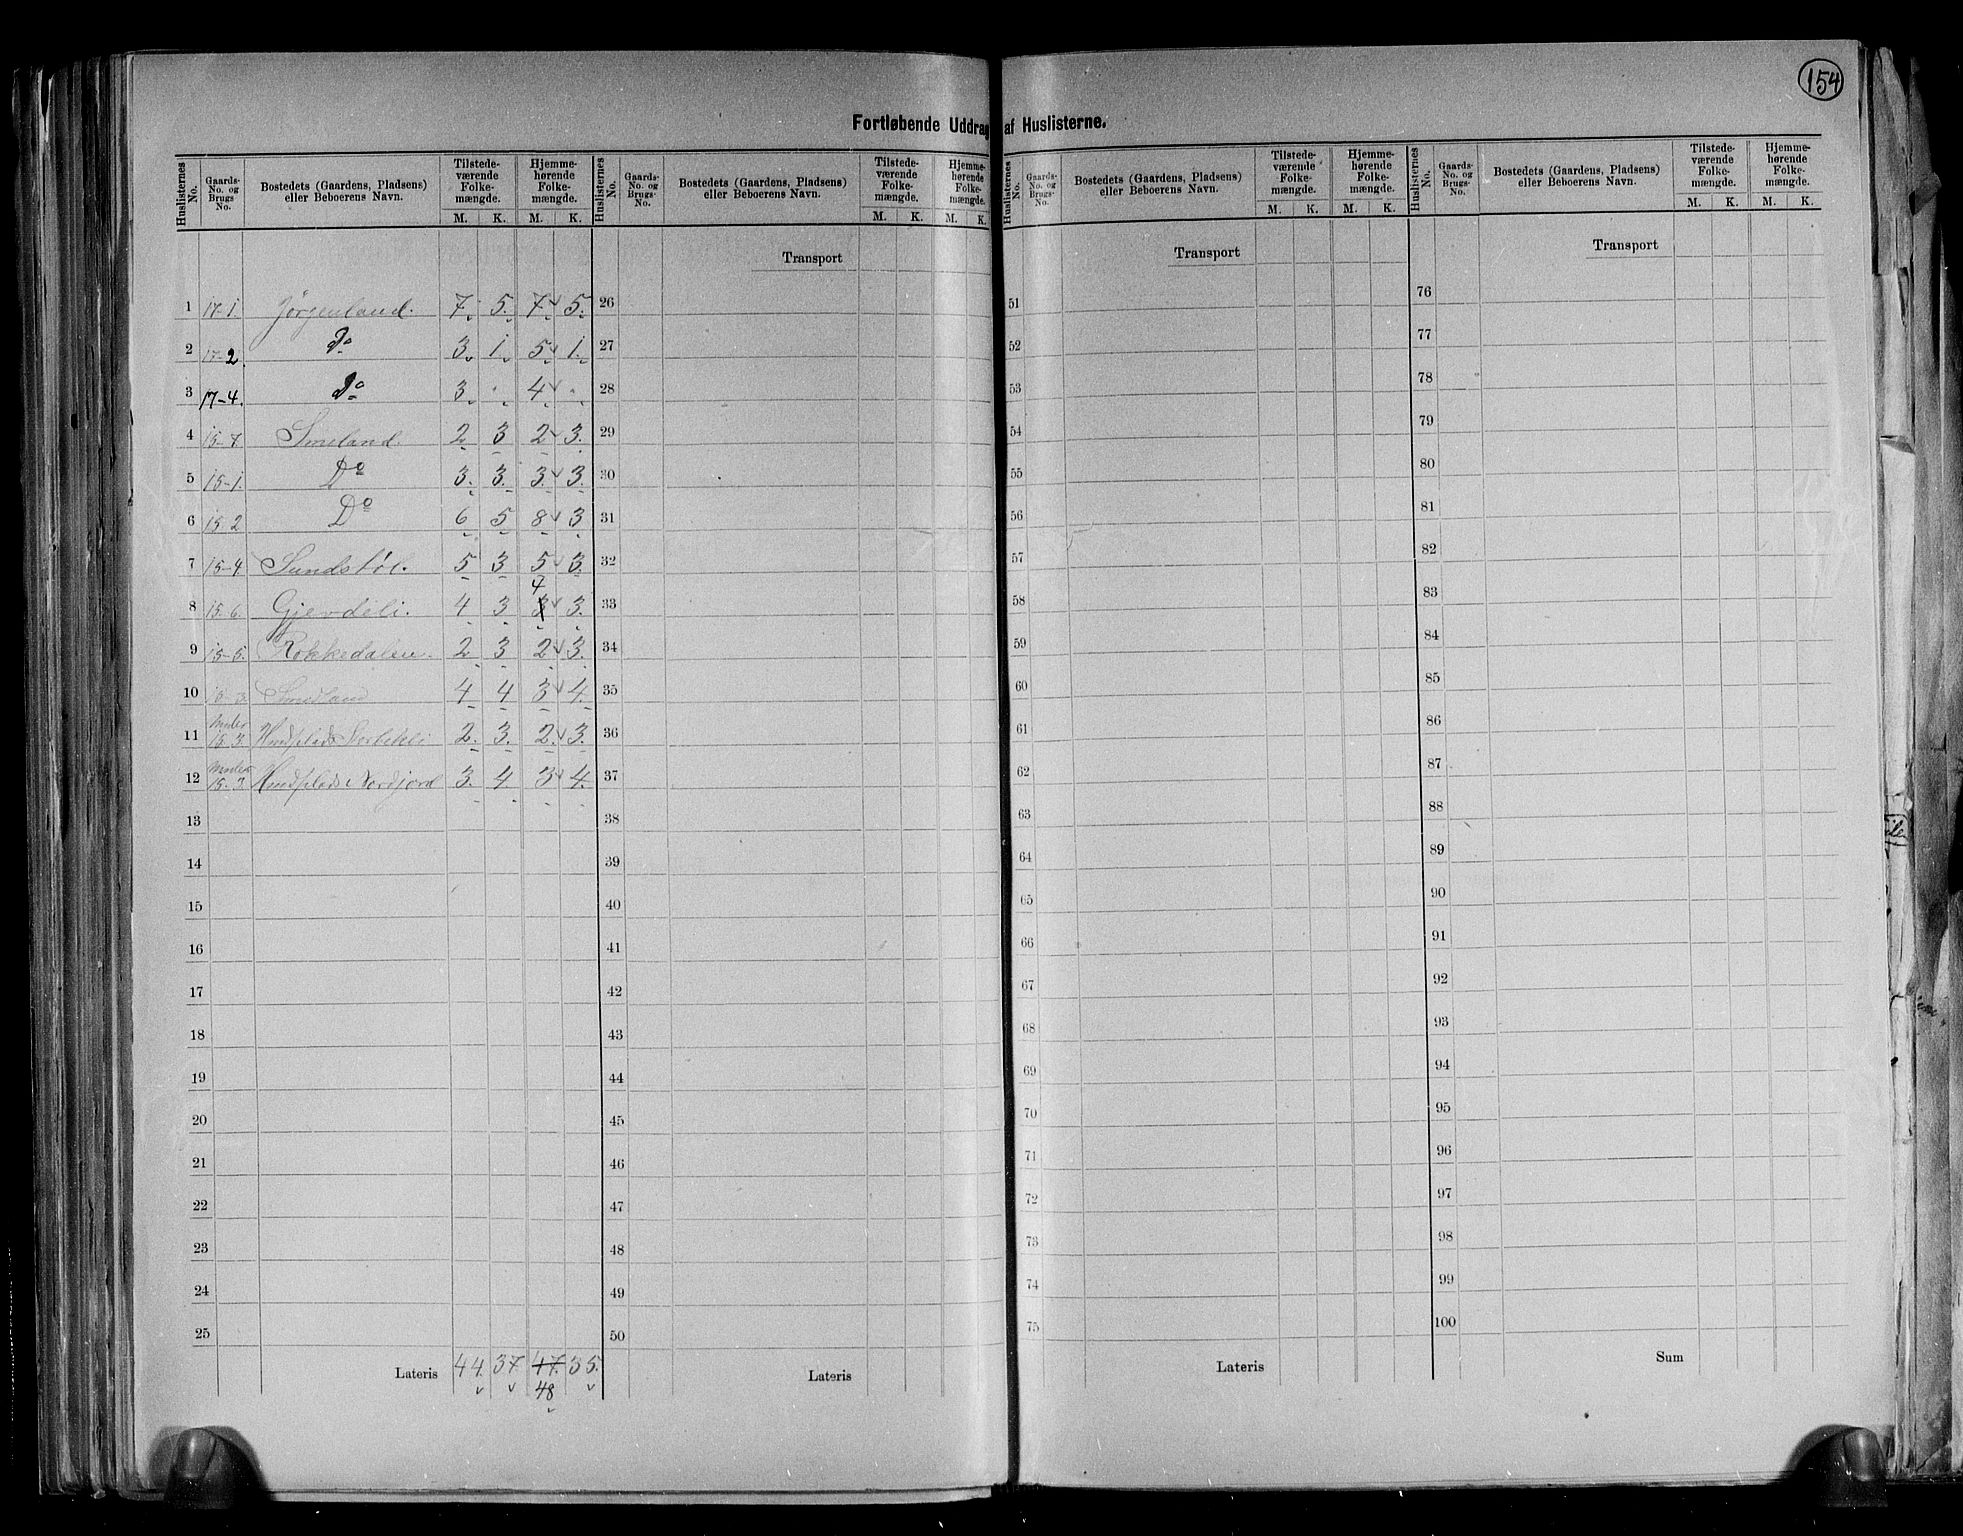 154
Fortløbende Uddrag af Huslisterne.
Huslisternes No. Gaards-No. og Brugs-No. Bostedets (Gaardens, Pladsens) eller Beboerens Navn. Tilstede-værende Folke-mængde. M. K. Hjemme-hørende Folke-mængde. M. K.
Huslisternes No. Gaards-No. og Brugs-No. Bostedets (Gaardens, Pladsens) eller Beboerens Navn. Tilstede-værende Folke-mængde. M. K. Hjemme-hørende Folke-mængde. M. K.
Huslisternes No. Gaards-No. og Brugs-No. Bostedets (Gaardens, Pladsens) eller Beboerens Navn. Tilstede-værende Folke-mængde. M. K. Hjemme-hørende Folke-mængde. M. K.
Huslisternes No. Gaards-No. og Brugs-No. Bostedets (Gaardens, Pladsens) eller Beboerens Navn. Tilstede-værende Folke-mængde. M. K. Hjemme-hørende Folke-mængde. M. K.
Transport Transport Transport
1 17-1. Jörgenland. 7. 5. 7. 5. 26 51 76
2 17-2. Do 3. 1. 5. 1. 27 52 77
3 17-4. Do 3. " 4. " 28 53 78
4 15-7. Smeland. 2 3 2 3. 29 54 79
5 15-1. Do 3. 3. 3. 3. 30 55 80
6 15 2 Do 6 5 8 3 31 56 81
7 15-4 Sundstöl. 5 3 5 3. 32 57 82
8 15-6. Gjevdeli. 4 3 3 4 3. 33 58 83
9 15-5. Rokkedalen. 2 3 2 3. 34 59 84
10 Smedland 4 4 3 4. 35 60 85
11 under 15.3. Husplads 2. 3. 2. 3. 36 61 86
12 under 15.3. Husplads Nordjord 3. 4. 3 4. 37 62 87
13 38 63 88
14 39 64 89
15 40 65 90
16 41 66 91
17 42 67 92
18 43 68 93
19 44 69 94
20 45 70 95
21 46 71 96
22 47 72 97
23 48 73 98
24 49 74 99
25 50 75 100
Lateris 44. 37. 47. 35. Lateris Lateris Sum
48